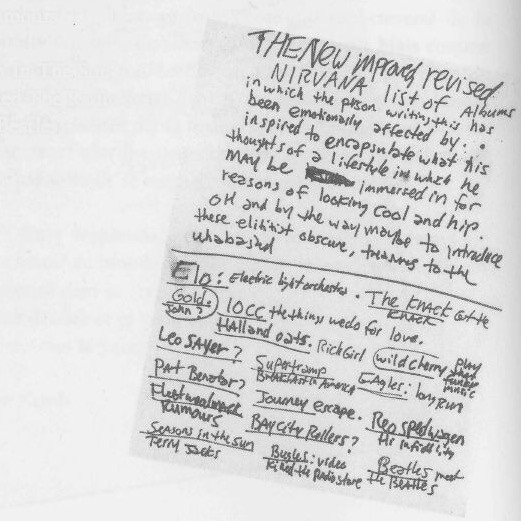 THE New improved revised
NIRVANA list of Albums
in which the person writing this has
been emotionally affected by. or
inspired to encapsulate what his
thoughts of a lifestyle in which he
may be immersed in for
reasons of looking cool and hip.
OH and by the way maybe to introduce
these elititist obscure, treasures to the
unabashed
Elo: Electric light orchestra. The KNACK Get the KNACK
Gold. John? 10CC the things we do for love.
Hall and oats. Rich Girl wild cherry play that funky music
Leo SAyer? Supertramp Breakfast in America EAgles: long Run
PAt Benatar? Journey escape. Reo speedwagon Hi infidelity
Fleetwood mack Rumours BAY City Rollers?
Seasons in the Sun Terry Jacks Bugles: video Killed the Radio store Beatles meet the Beatles